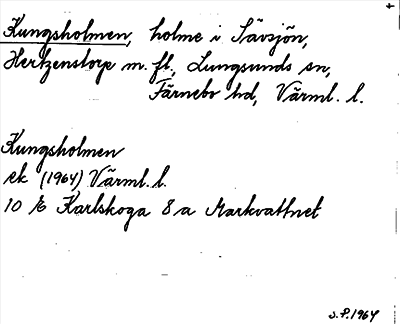 Kungsholmen, holme i Sävsjön,
Hertzenstorp m. fl., Lungsunds sn,
Färnebo hd, Värml. l.
Kungsholmen
ek (1964) Värml. l.
10 E Karlskoga 8 a Markvattnet
S.P. 1964